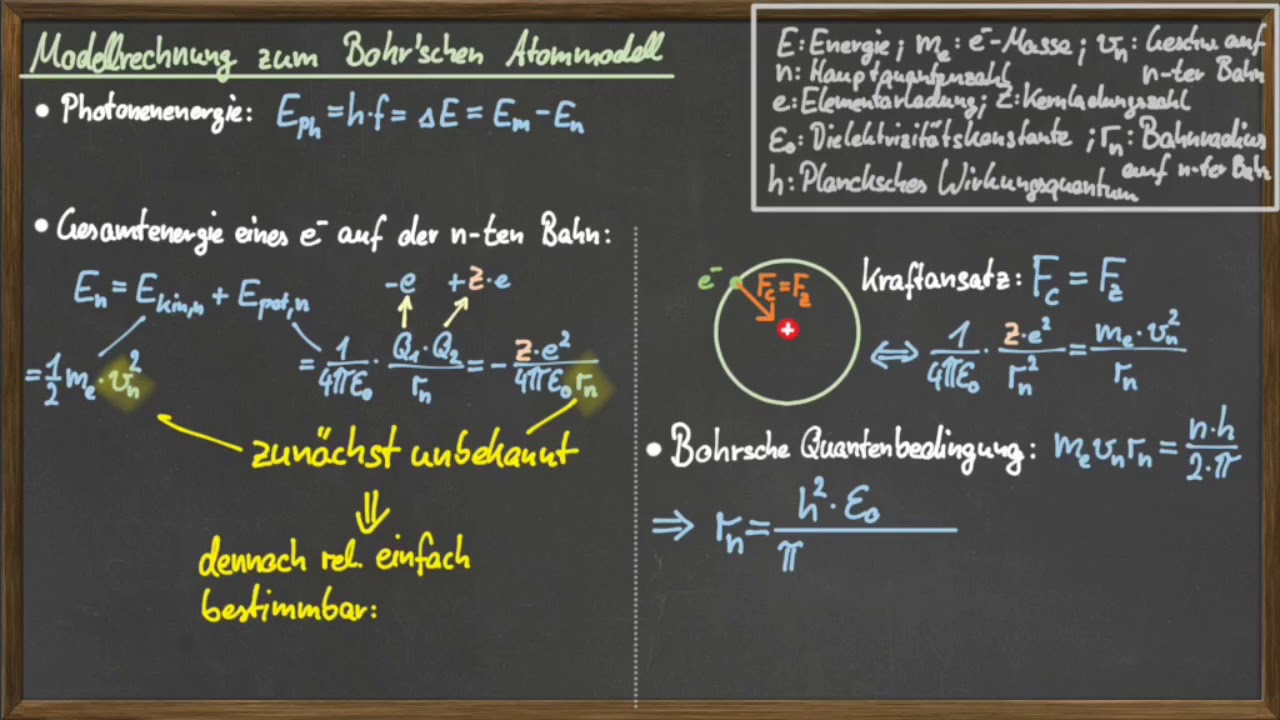 Modellrechnung zum Bohr'schen Atommodell
• Photonenenergie: E_ph = h·f = ΔE = E_m − E_n
E: Energie; m_e: e⁻-Masse; v_n: Geschw. auf
n: Hauptquantenzahl n-ter Bahn
e: Elementarladung; Z: Kernladungszahl
ε₀: Dielektrizitätskonstante; r_n: Bahnradius
auf n-ter Bahn
h: Plancksches Wirkungsquantum
• Gesamtenergie eines e⁻ auf der n-ten Bahn:
-e +Z·e
E_n = E_kin,n + E_pot,n
= 1/2 m_e · v_n²
= 1/(4πε₀) · (Q₁·Q₂)/r_n = − (Z·e²)/(4πε₀ r_n)
zunächst unbekannt
⇓
dennoch rel. einfach
bestimmbar:
e⁻ F_c = F_z
+
Kraftansatz: F_c = F_z
⇔ 1/(4πε₀) · (Z·e²)/r_n² = (m_e · v_n²)/r_n
• Bohrsche Quantenbedingung: m_e v_n r_n = (n·h)/(2·π)
⇒ r_n = (h²·ε₀)/π